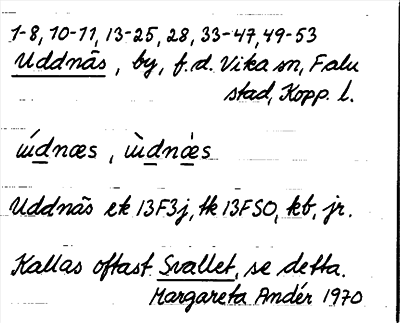 1-8, 10-11, 13-25, 28, 33-47, 49-53
Uddnäs, by, f.d. Vika sn, Falu
stad, Kopp. l.
ɯ́dnæs, ɯ̀dnæ̀s
Uddnäs ek 13F3j, tk 13FSO, kb, jr.
Kallas oftast Svallet, se detta.
Margareta Andér 1970